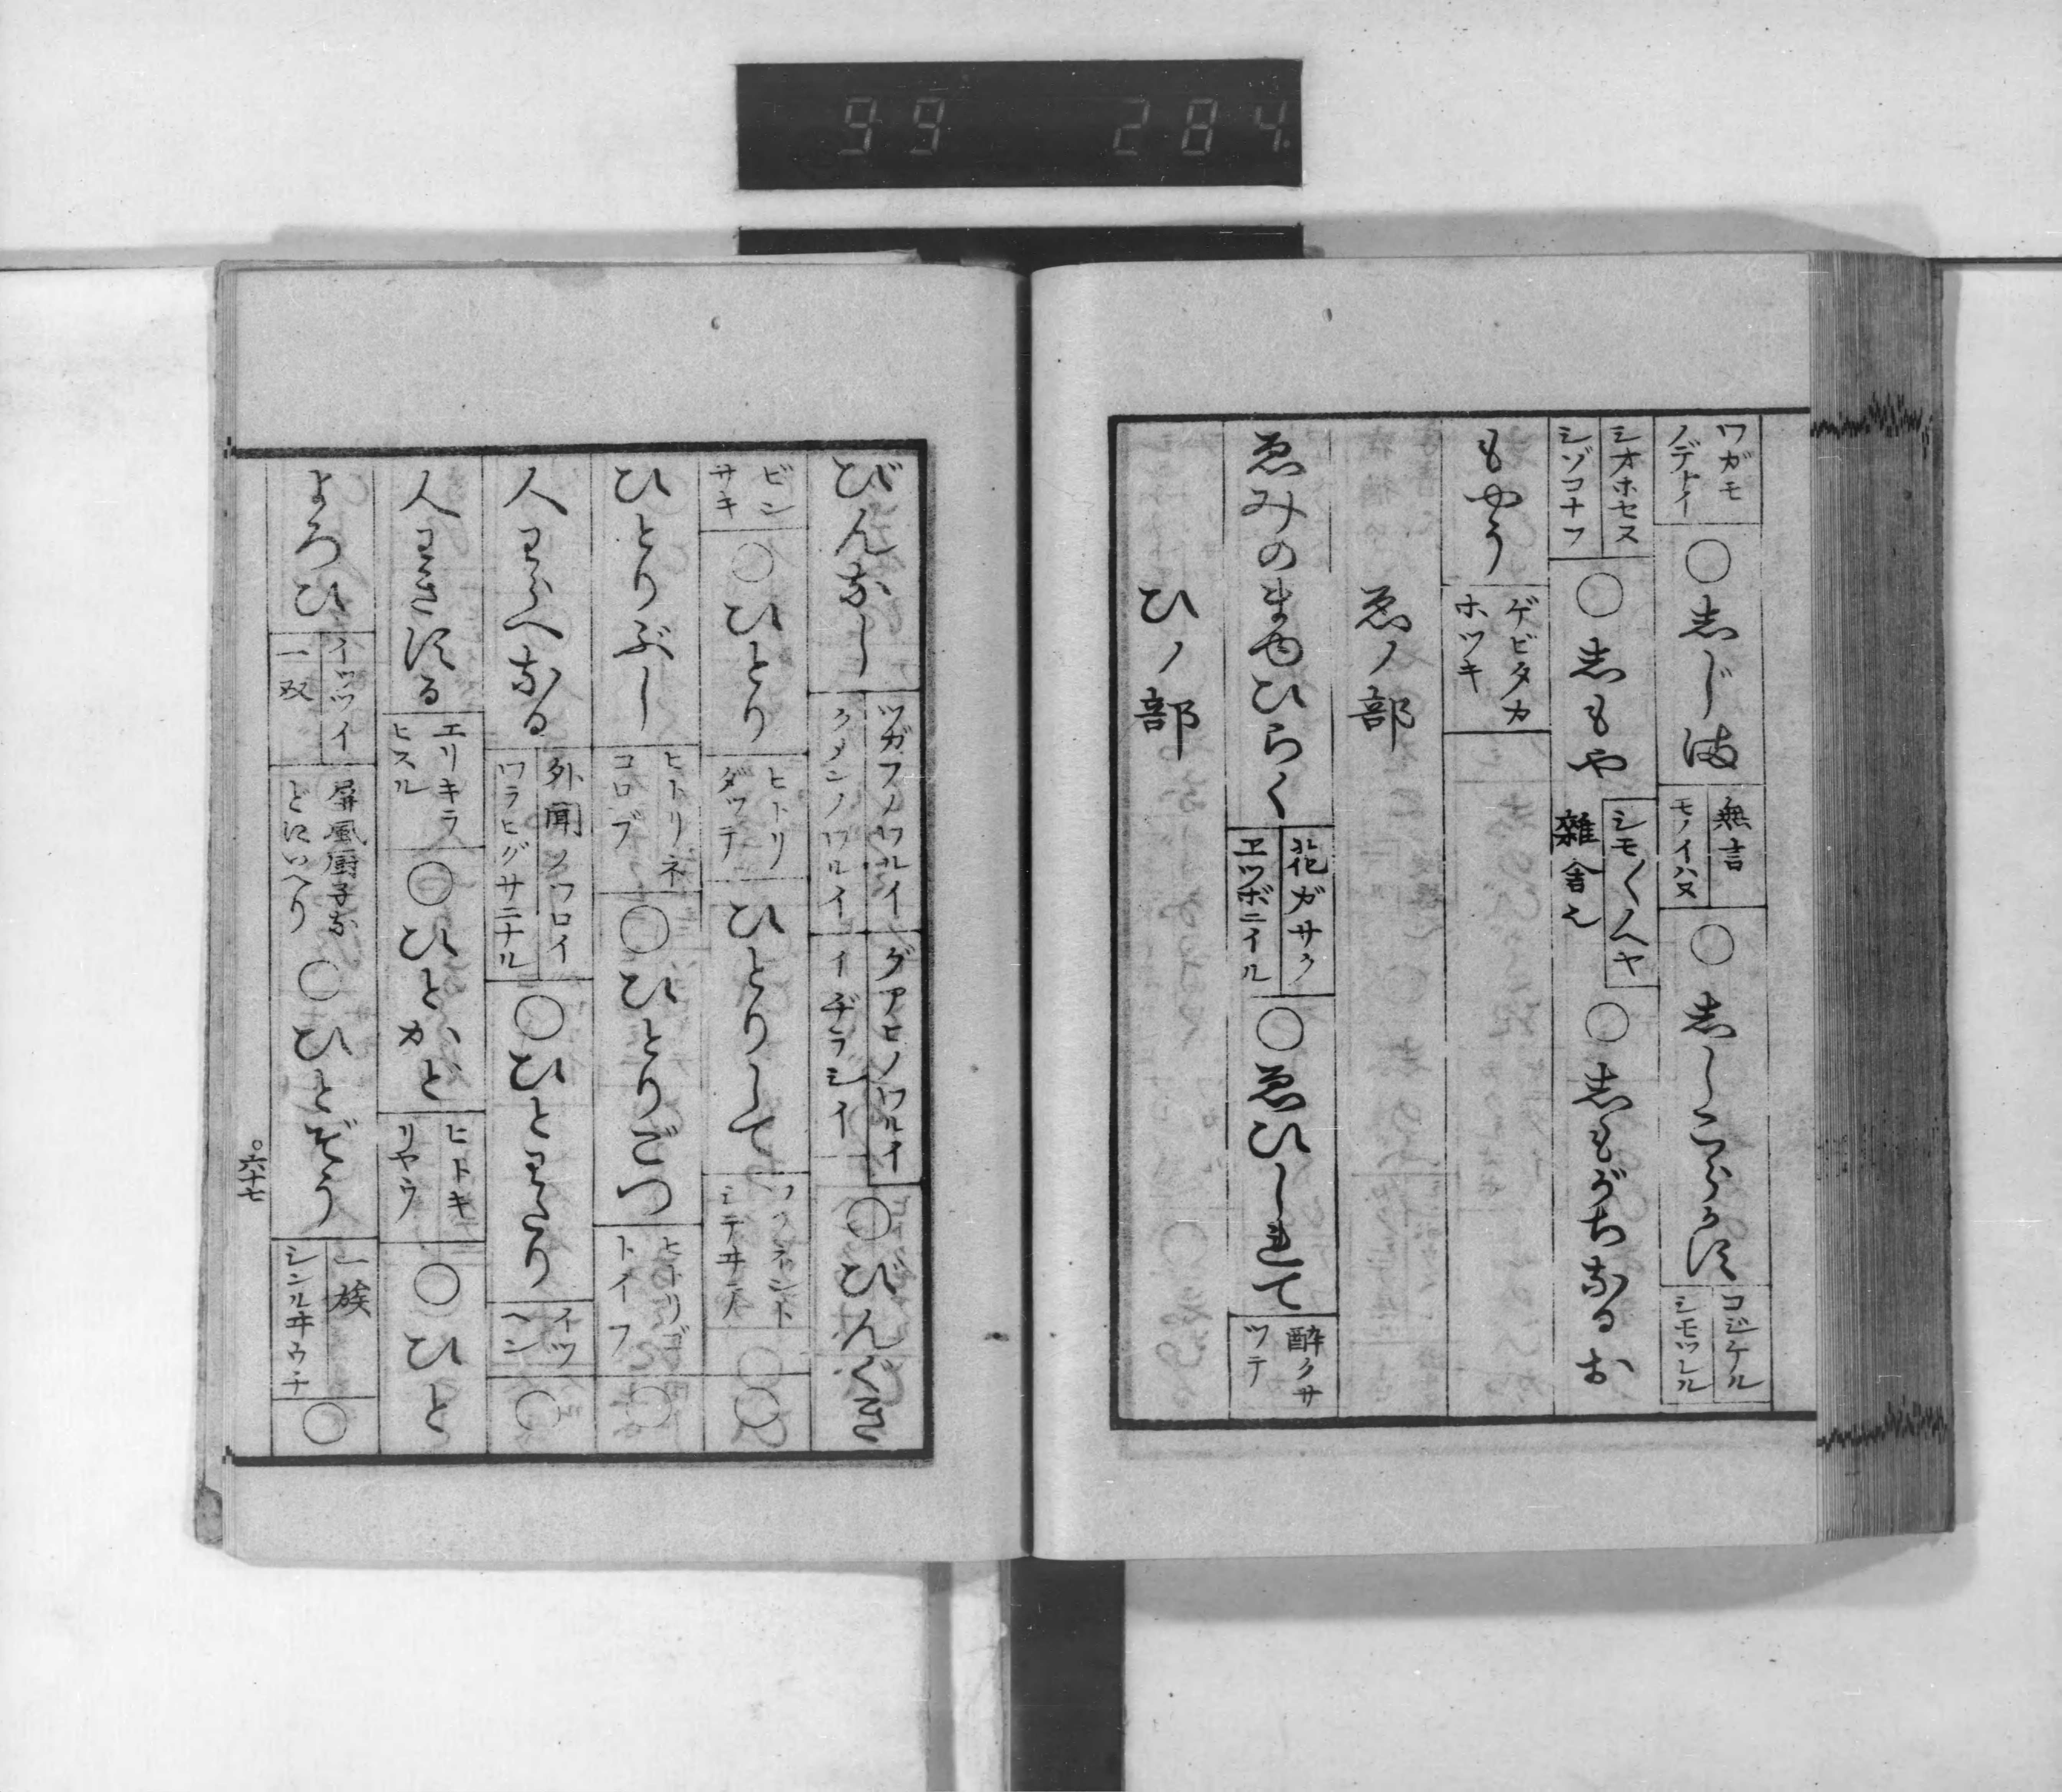 99 284
ワガモ
ノデナイ
○しじま
無言
モノイハヌ
○しゝこらかす
コジケル
シモツレル
シオホセス
シゾコナフ
○しもや
シモ〱ヘヤ
雜舎也
○しもがちなるお
もやう
ゲビタカ
ホツキ
ゑノ部
ゑみのまゆひらく
花ガサク
エツボニイル
○ゑひしれて
酔クサ
ツテ
ひノ部
びんなし
ツガフノワルイ
クメンノワルイ
グアヒノワルイ
イヂラシイ
○びんぐき
ビン
サキ
○ひとり
ヒトリ
ダツテ
ひとりして
シテヰテ
○
ひとりぶし
ヒトリネ
コロブ
○ひとりごつ
ヒトリゴ
トイフ
○
人わらへなる
外聞ノワロイ
ワラヒグサニナル
○ひとわたり
イツ
ヘン
○
人わきする
エリキラ
ヒスル
○ひとかど
ヒトキ
リヤウ
○ひと
よろひ
イツツイ
一双
屏風厨子な
どにいへり
○ひとぞう
一族
シンルヰウチ
○
○六十七